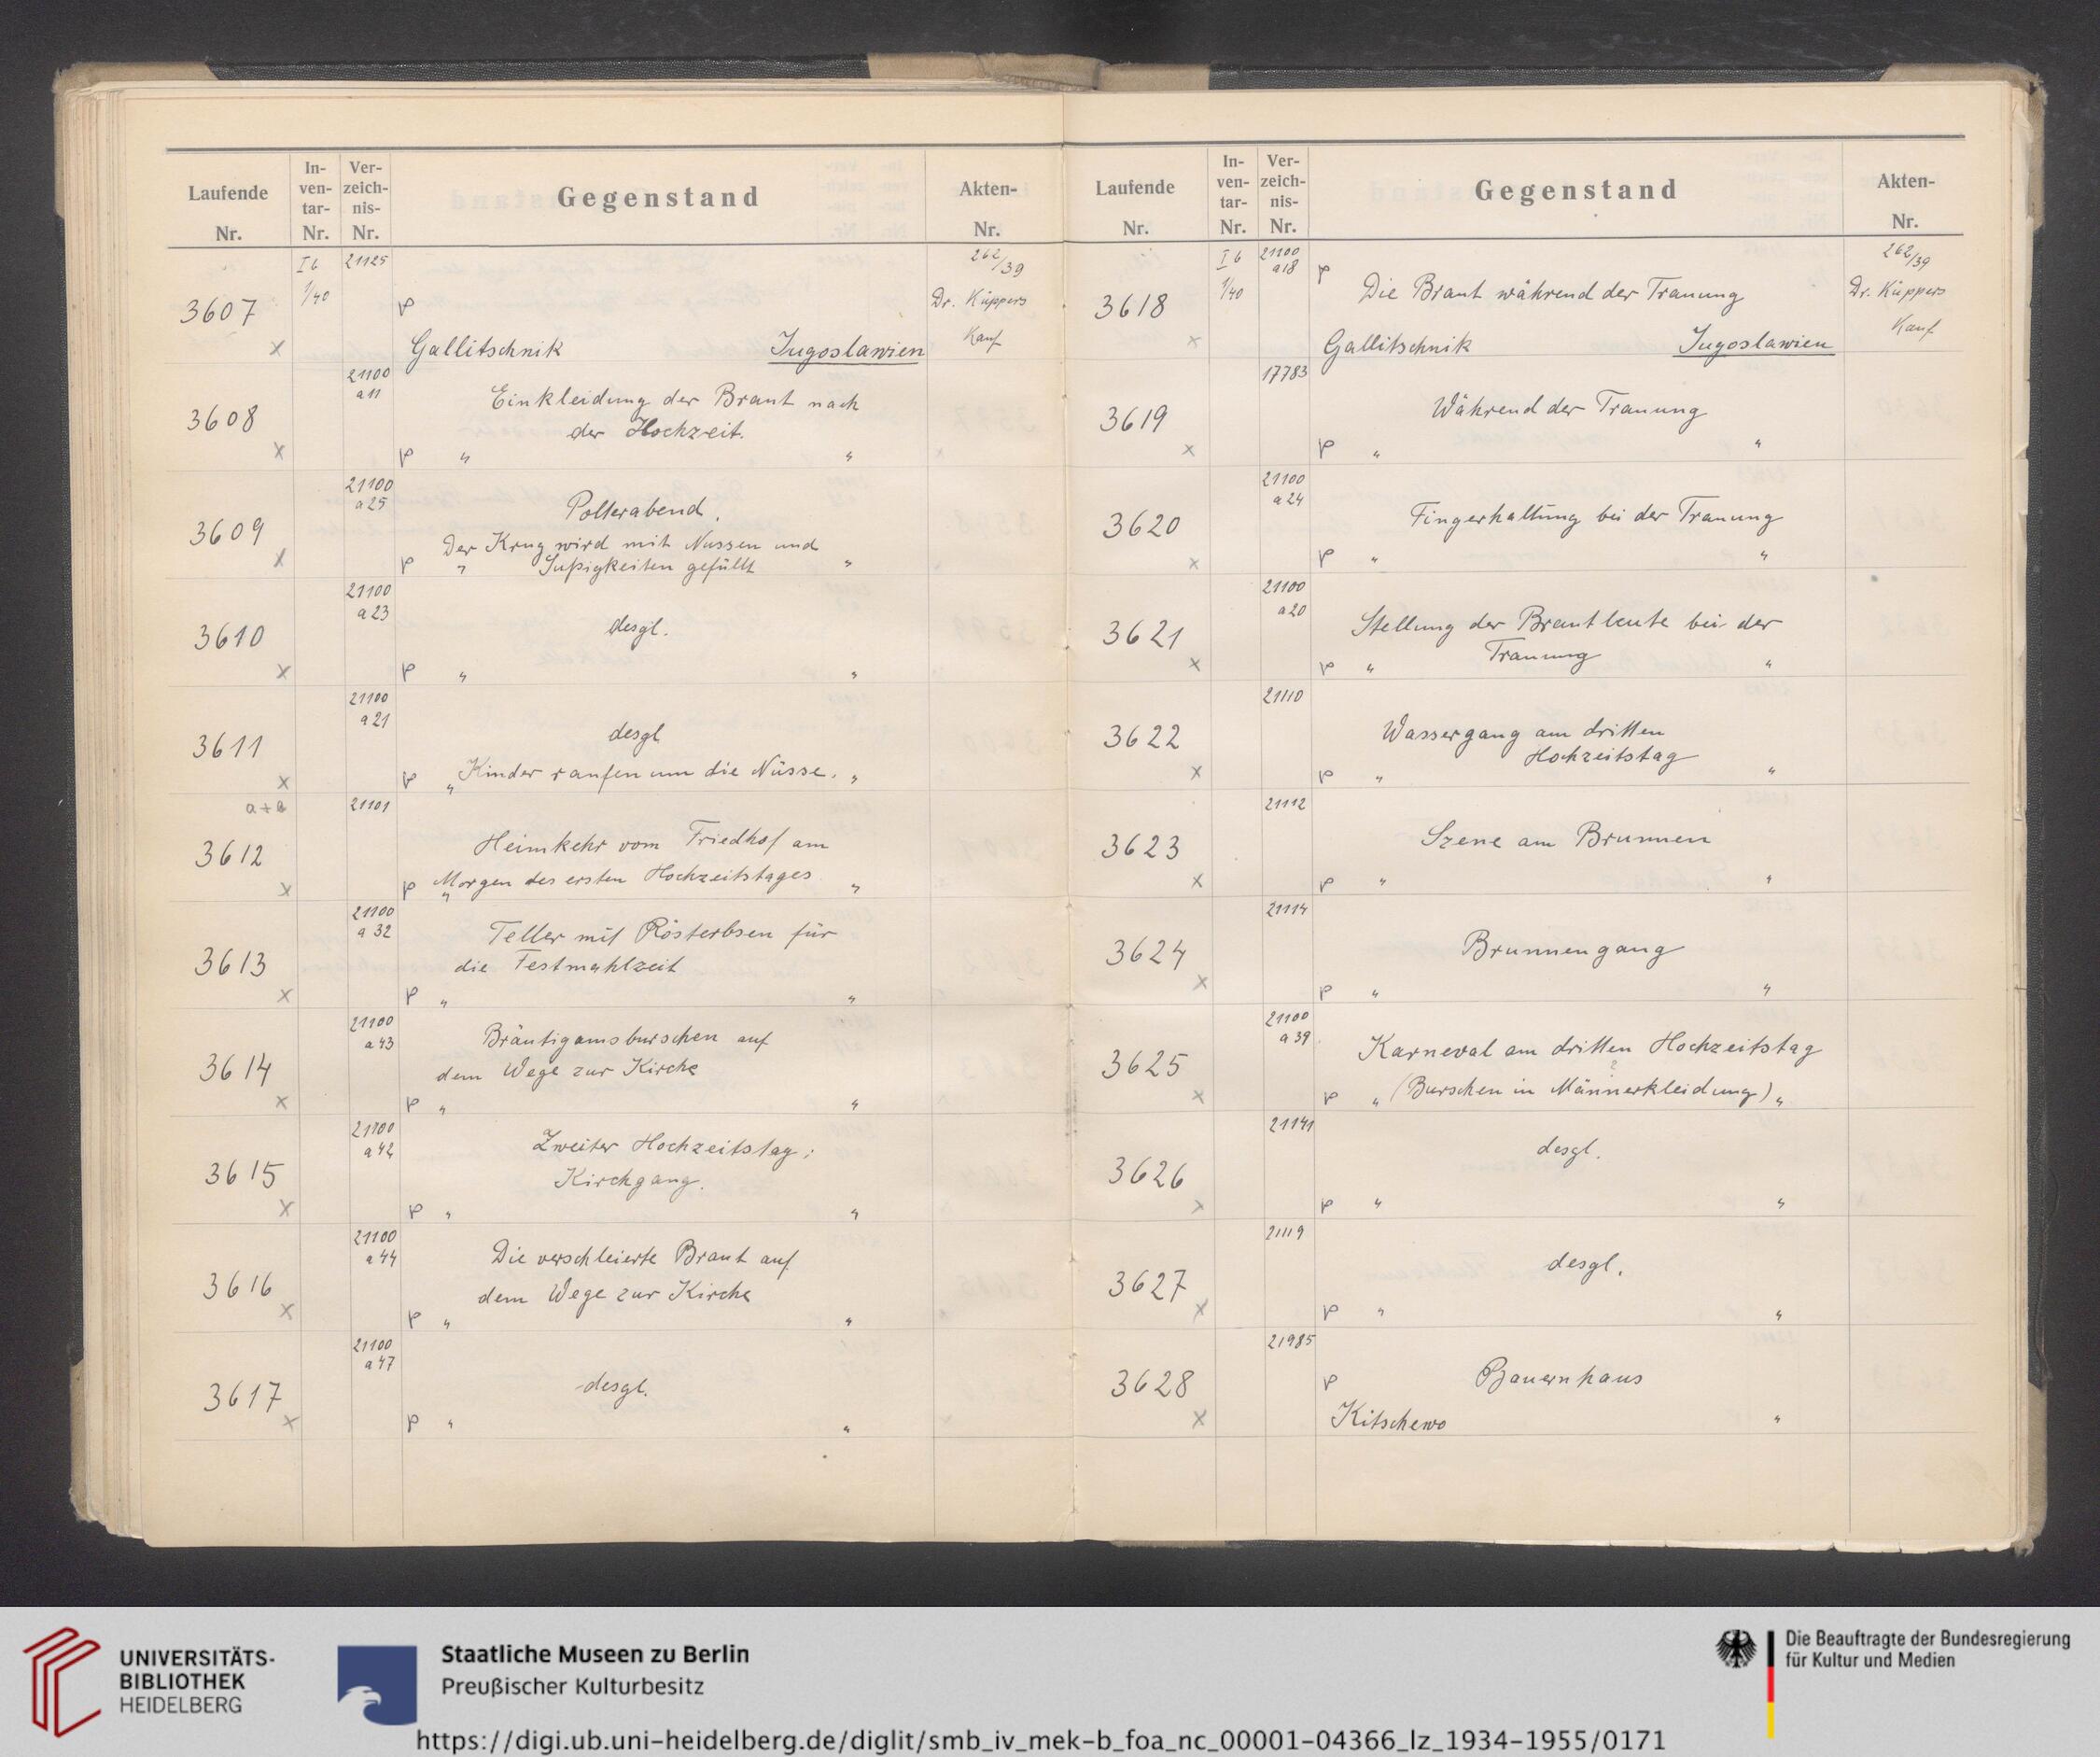 Laufende Nr.
In-ven-tar-Nr.
Ver-zeich-nis-Nr.
Gegenstand
Akten-Nr.
3607 x
I b 1/40
21125
p
Gallitschnik Jugoslawien
262/39
Dr. Küppers
Kauf
3608 x
21100 a 11
Einkleidung der Braut nach
der Hochzeit.
p " "
3609 x
21100 a 25
Polterabend.
Der Krug wird mit Nussen und
p " Sußigkeiten gefüllt "
3610 x
21100 a 23
desgl.
p " "
3611 x
21100 a 21
desgl
p " Kinder raufen um die Nüsse. "
a + a
3612 x
21101
Heimkehr vom Friedhof am
p " Morgen des ersten Hochzeitstages "
3613 x
21100 a 32
Teller mit Rösterbsen für
die Festmahlzeit
p " "
3614 x
21100 a 43
Bräutigamsburschen auf
dem Wege zur Kirche
p " "
3615 x
21100 a 42
Zweiter Hochzeitstag:
Kirchgang.
p " "
3616 x
21100 a 44
Die verschleierte Braut auf
dem Wege zur Kirche
p " "
3617 x
21100 a 47
desgl.
p " "
Laufende Nr.
In-ven-tar-Nr.
Ver-zeich-nis-Nr.
Gegenstand
Akten-Nr.
3618 x
I b 1/40
21100 a 18
p
Die Braut während der Trauung
Gallitschnik Jugoslawien
262/39
Dr. Küppers
Kauf
3619 x
17783
Während der Trauung
p " "
3620 x
21100 a 24
Fingerhaltung bei der Trauung
p " "
3621 x
21100 a 20
Stellung der Brautleute bei der
p " Trauung "
3622 x
21110
Wassergang am dritten
Hochzeitstag
p " "
3623 x
21112
Szene am Brunnen
p " "
3624 x
21114
Brunnengang
p " "
3625 x
21100 a 39
Karneval am dritten Hochzeitstag
?
p " (Burschen in Männerkleidung) "
3626 x
21141
desgl.
p " "
3627 x
21119
desgl.
p " "
3628 x
21985
p Bauernhaus
Kitschewo "
UNIVERSITÄTS-
BIBLIOTHEK
HEIDELBERG
Staatliche Museen zu Berlin
Preußischer Kulturbesitz
Die Beauftragte der Bundesregierung
für Kultur und Medien
https://digi.ub.uni-heidelberg.de/diglit/smb_iv_mek-b_foa_nc_00001-04366_lz_1934-1955/0171